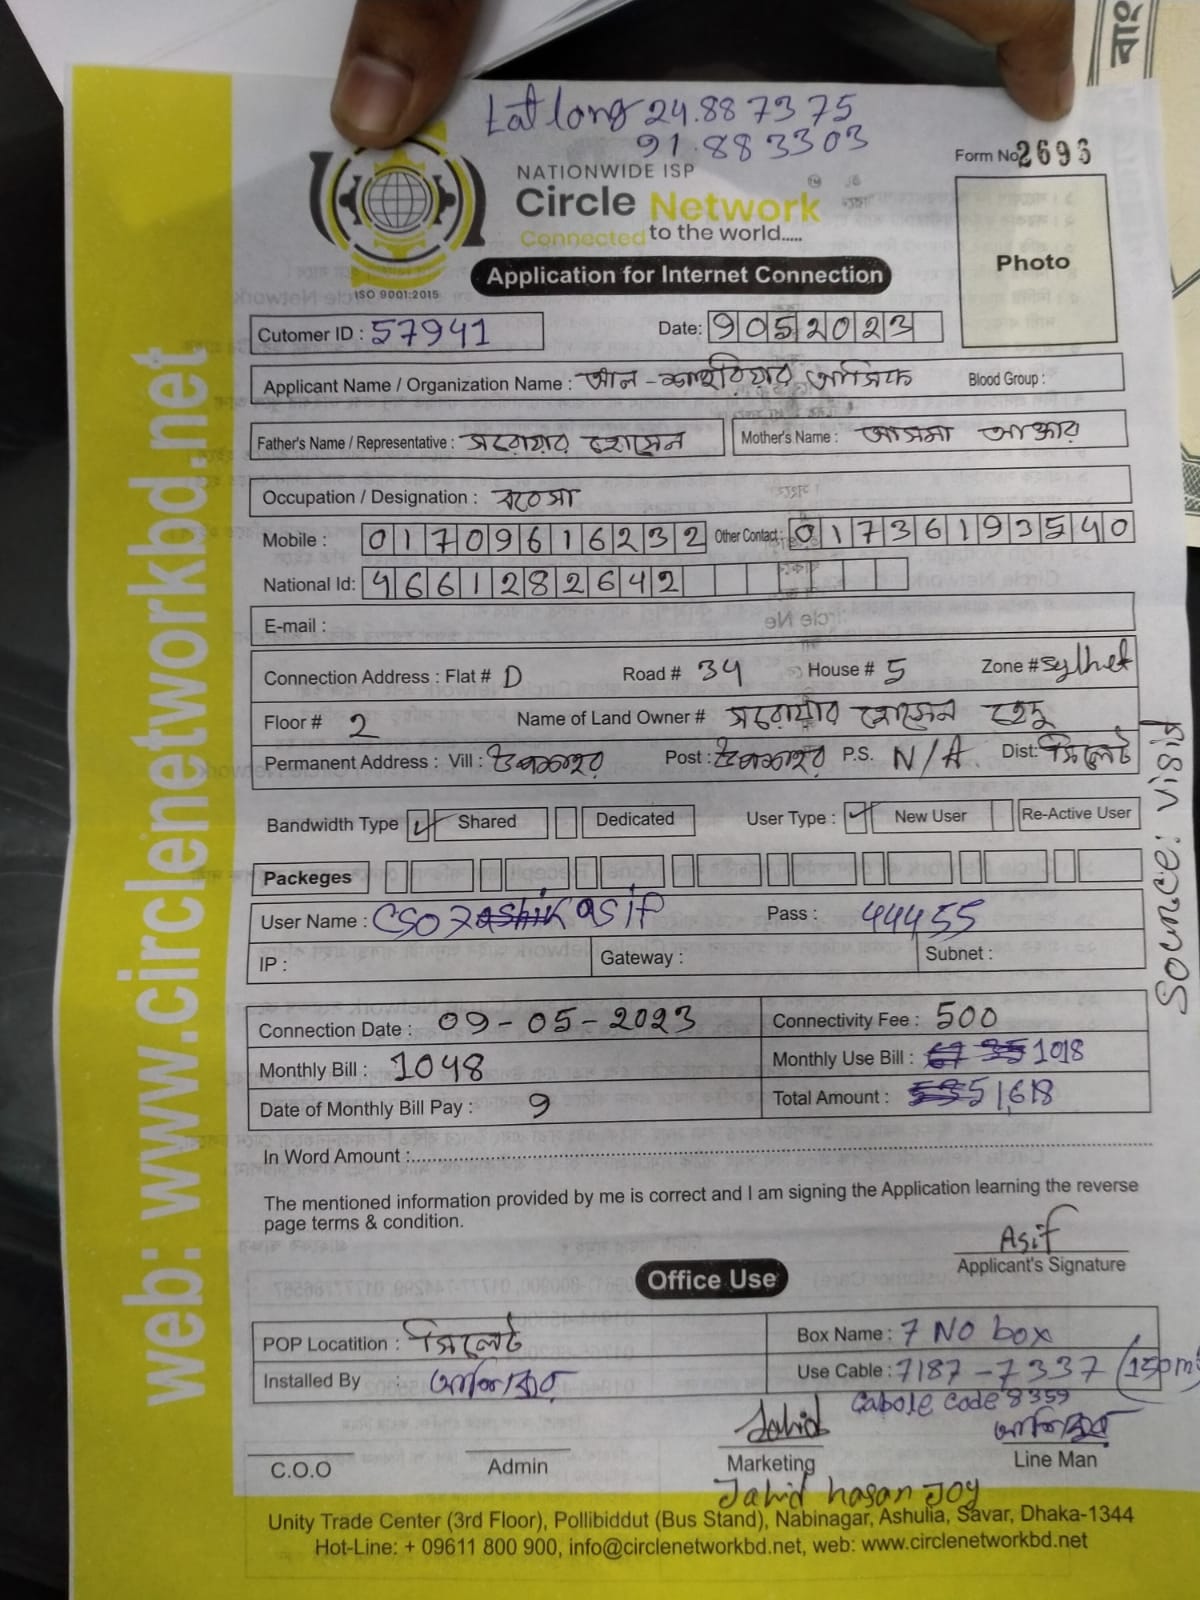 Lat long 24.887375
91.883303
NATIONWIDE ISP
Form No 2693
Circle Network
Connected to the world.....
ISO 9001:2015
Application for Internet Connection
Photo
Cutomer ID : 57941
Date: 9052023
Applicant Name / Organization Name : আল-শাহরিয়ার আসিফ Blood Group :
Father's Name / Representative : সরোয়ার হোসেন Mother's Name : আসমা আক্তার
Occupation / Designation :
Mobile : 01709616232 Other Contact : 01736193540
National Id: 4661282642
E-mail :
Connection Address : Flat # D Road # 34 House # 5 Zone # Sylhet
Floor # 2 Name of Land Owner # সরোয়ার হোসেন
Permanent Address : Vill : উপশহর Post : উপশহর P.S. N/A Dist: সিলেট
Bandwidth Type Shared Dedicated User Type : New User Re-Active User
Packeges
User Name : CSO7 asif Pass : 44455
IP : Gateway : Subnet :
Connection Date : 09-05-2023 Connectivity Fee : 500
Monthly Bill : 1048 Monthly Use Bill : 1018
Date of Monthly Bill Pay : 9 Total Amount : 1,618
In Word Amount :
The mentioned information provided by me is correct and I am signing the Application learning the reverse
page terms & condition.
Asif
Applicant's Signature
Office Use
POP Locatition : সিলেট Box Name : 7 NO box
Installed By : Use Cable : 7187-7337 (150m)
Cabole code 8359
Jahid
C.O.O Admin Marketing Line Man
Jahid hasan Joy
Unity Trade Center (3rd Floor), Pollibiddut (Bus Stand), Nabinagar, Ashulia, Savar, Dhaka-1344
Hot-Line: + 09611 800 900, info@circlenetworkbd.net, web: www.circlenetworkbd.net
web: www.circlenetworkbd.net
Source: visit